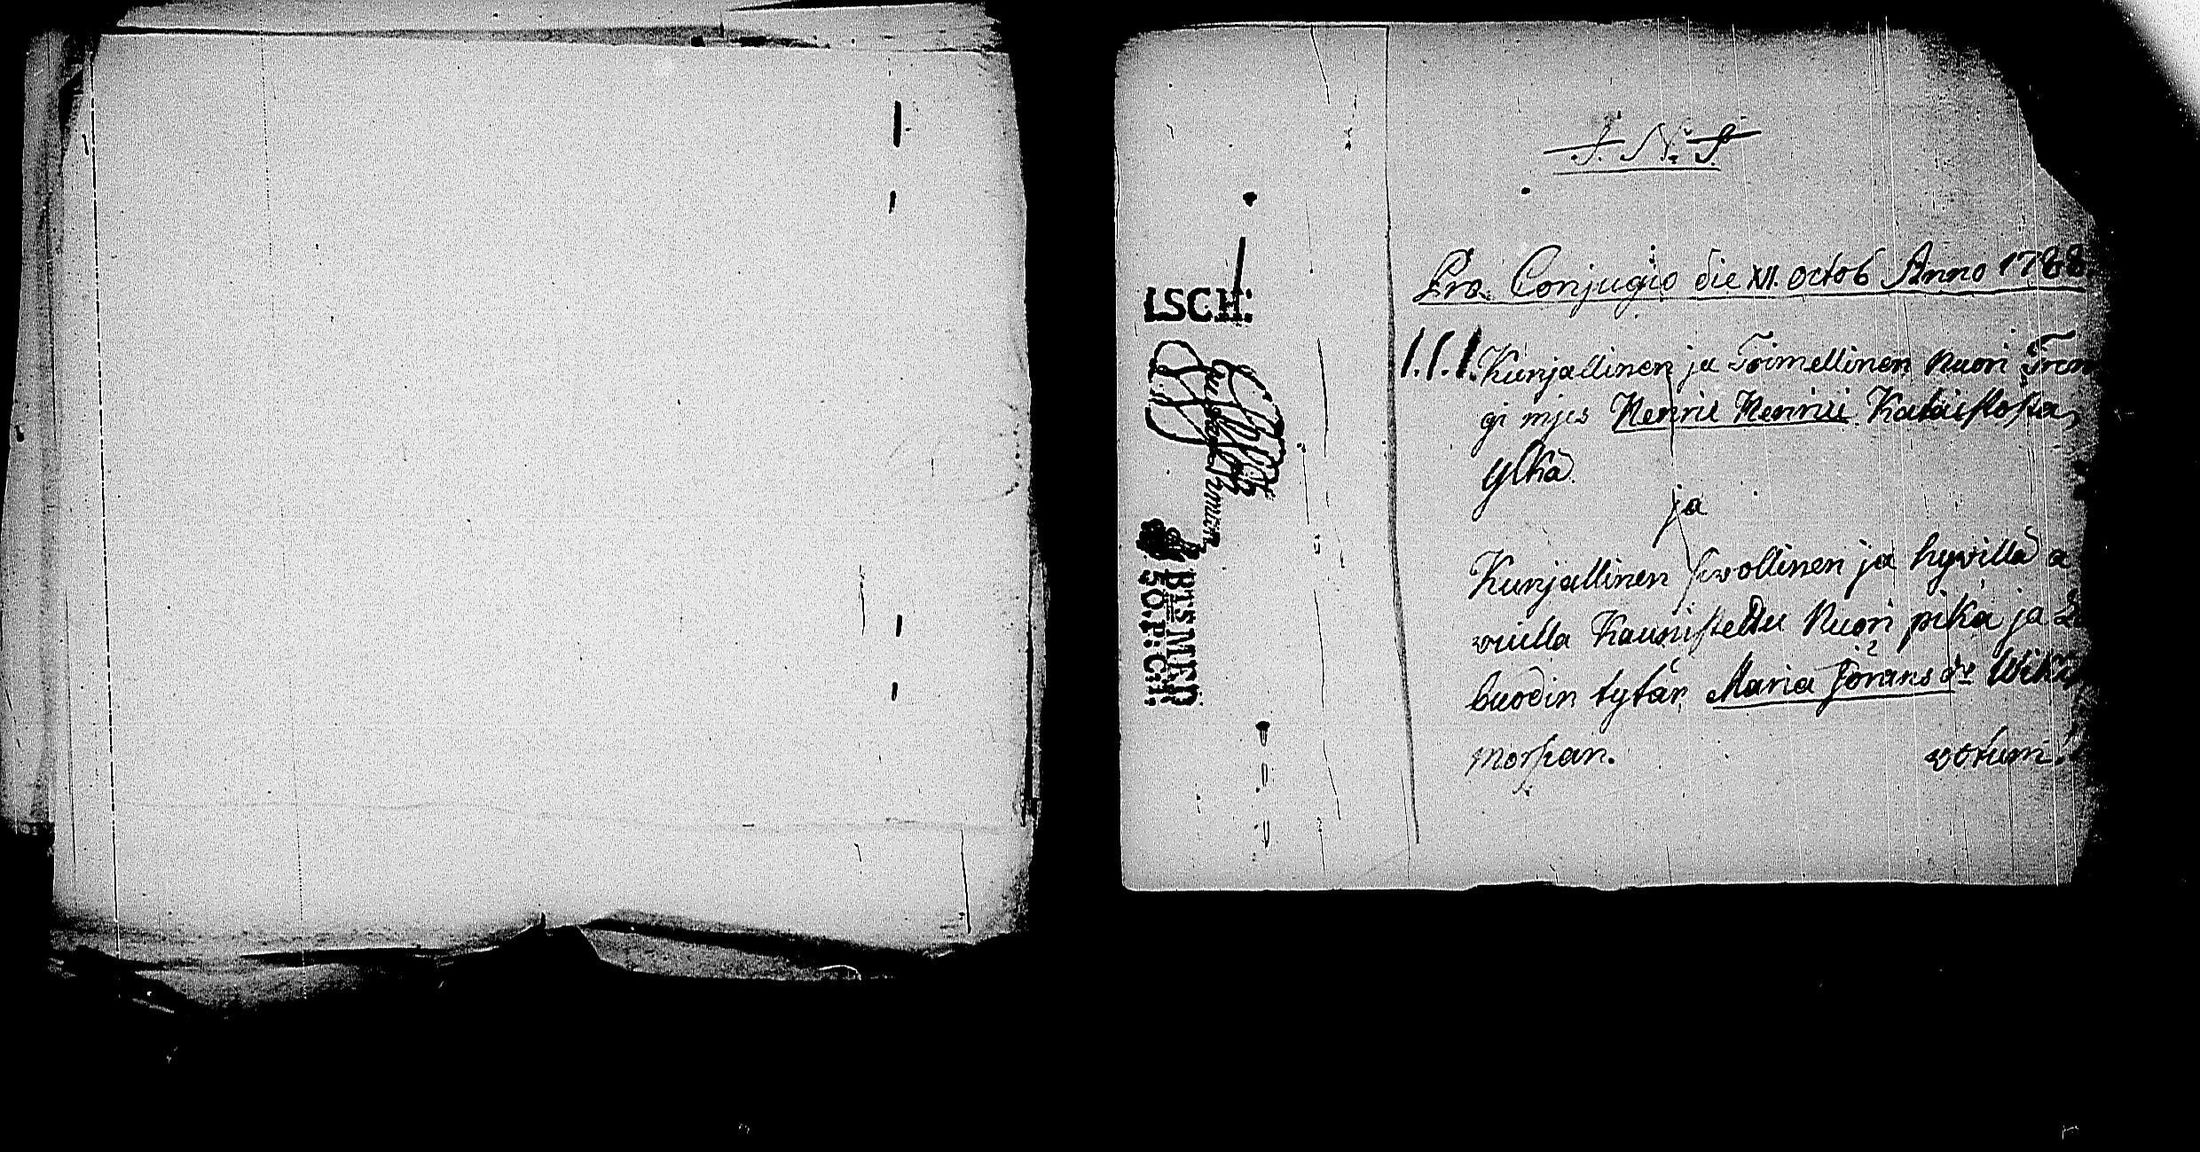 J. N. J.
Pro Conjugio die XII. octob Anno 1788
1.1.1. Kunjallinen ja Toimellinen nuori Tren
gi mjes Henric Henrici Kataistosta,
ylkä.
ja
Kunjallinen siwollinen ja hyvillä a
wuilla Kaunistettu Nuori pika ja
buodin tytär Maria Jörans dr Wik
morsian. votum.
LSCH:
BISMER
50. P: C.H.